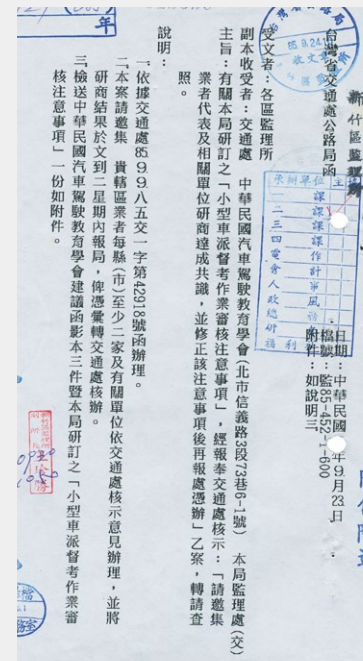 台灣省交通處公路局函
新竹區監理所
85.9.24
收文
承辦單位
主
日期：中華民國 年9月23日
檔號：監85-452-1-600
附件：如說明三
受文者：各區監理所
副本收受者：交通處　中華民國汽車駕駛教育學會（北市信義路3段73巷6-1號）　本局監理處（交）
主旨：有關本局研訂之「小型車派督考作業審核注意事項」，經報奉交通處核示：「請邀集
業者代表及相關單位研商達成共識，並修正該注意事項後再報處憑辦」乙案，轉請查
照。
說明：
一、依據交通處85.9.9.八五交一字第42918號函辦理。
二、本案請邀集　貴轄區業者每縣（市）至少二家及有關單位依交通處核示意見辦理，並將
研商結果於文到二星期內報局，俾憑彙轉交通處核辦。
三、檢送中華民國汽車駕駛教育學會建議函影本三件暨本局研訂之「小型車派督考作業審
核注意事項」一份如附件。
年